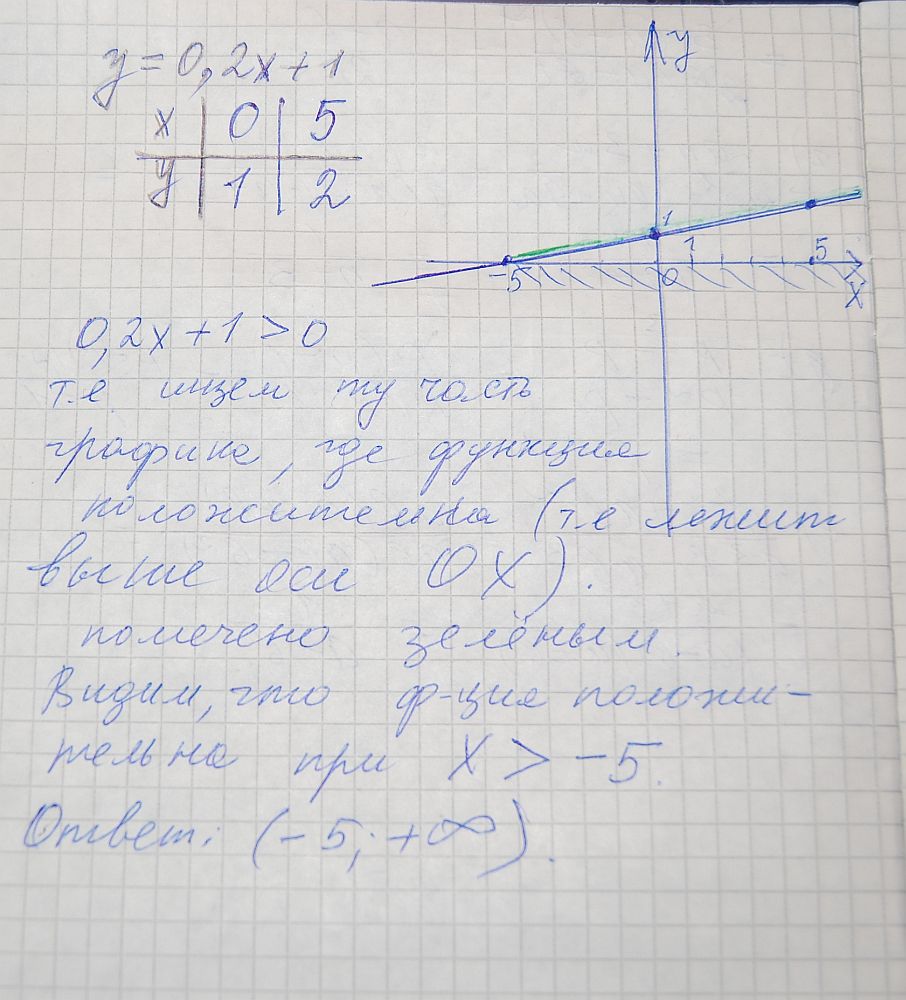 y = 0,2x + 1
x 0 5
y 1 2
y
1
1
-5
0
5
x
0,2x + 1 > 0
т.е. ищем ту часть
графика, где функция
положительна (т.е лежит
выше оси OX).
помечено зелёным.
Видим, что ф-ция положи-
тельна при X > -5.
Ответ: (-5; +∞).